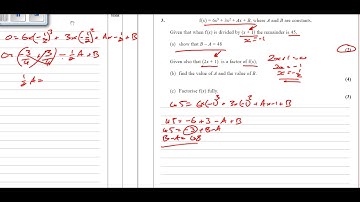 0 = 6x(-½)³ + 3x(-½)² + Ax-½ + B
0 = (-3/4 + 3/4) - ½A + B
½A =
3.
f(x) = 6x³ + 3x² + Ax + B, where A and B are constants.
Given that when f(x) is divided by (x + 1) the remainder is 45,
x = -1
(a) show that B – A = 48
(2)
Given also that (2x + 1) is a factor of f(x),
2x+1=0
2x = -1
x = -½
(b) find the value of A and the value of B.
(4)
(c) Factorise f(x) fully.
45 = 6x(-1)³ + 3x(-1)² + Ax-1 + B
(3)
45 = -6 + 3 - A + B
45 = -3 + B-A
B-A = 48